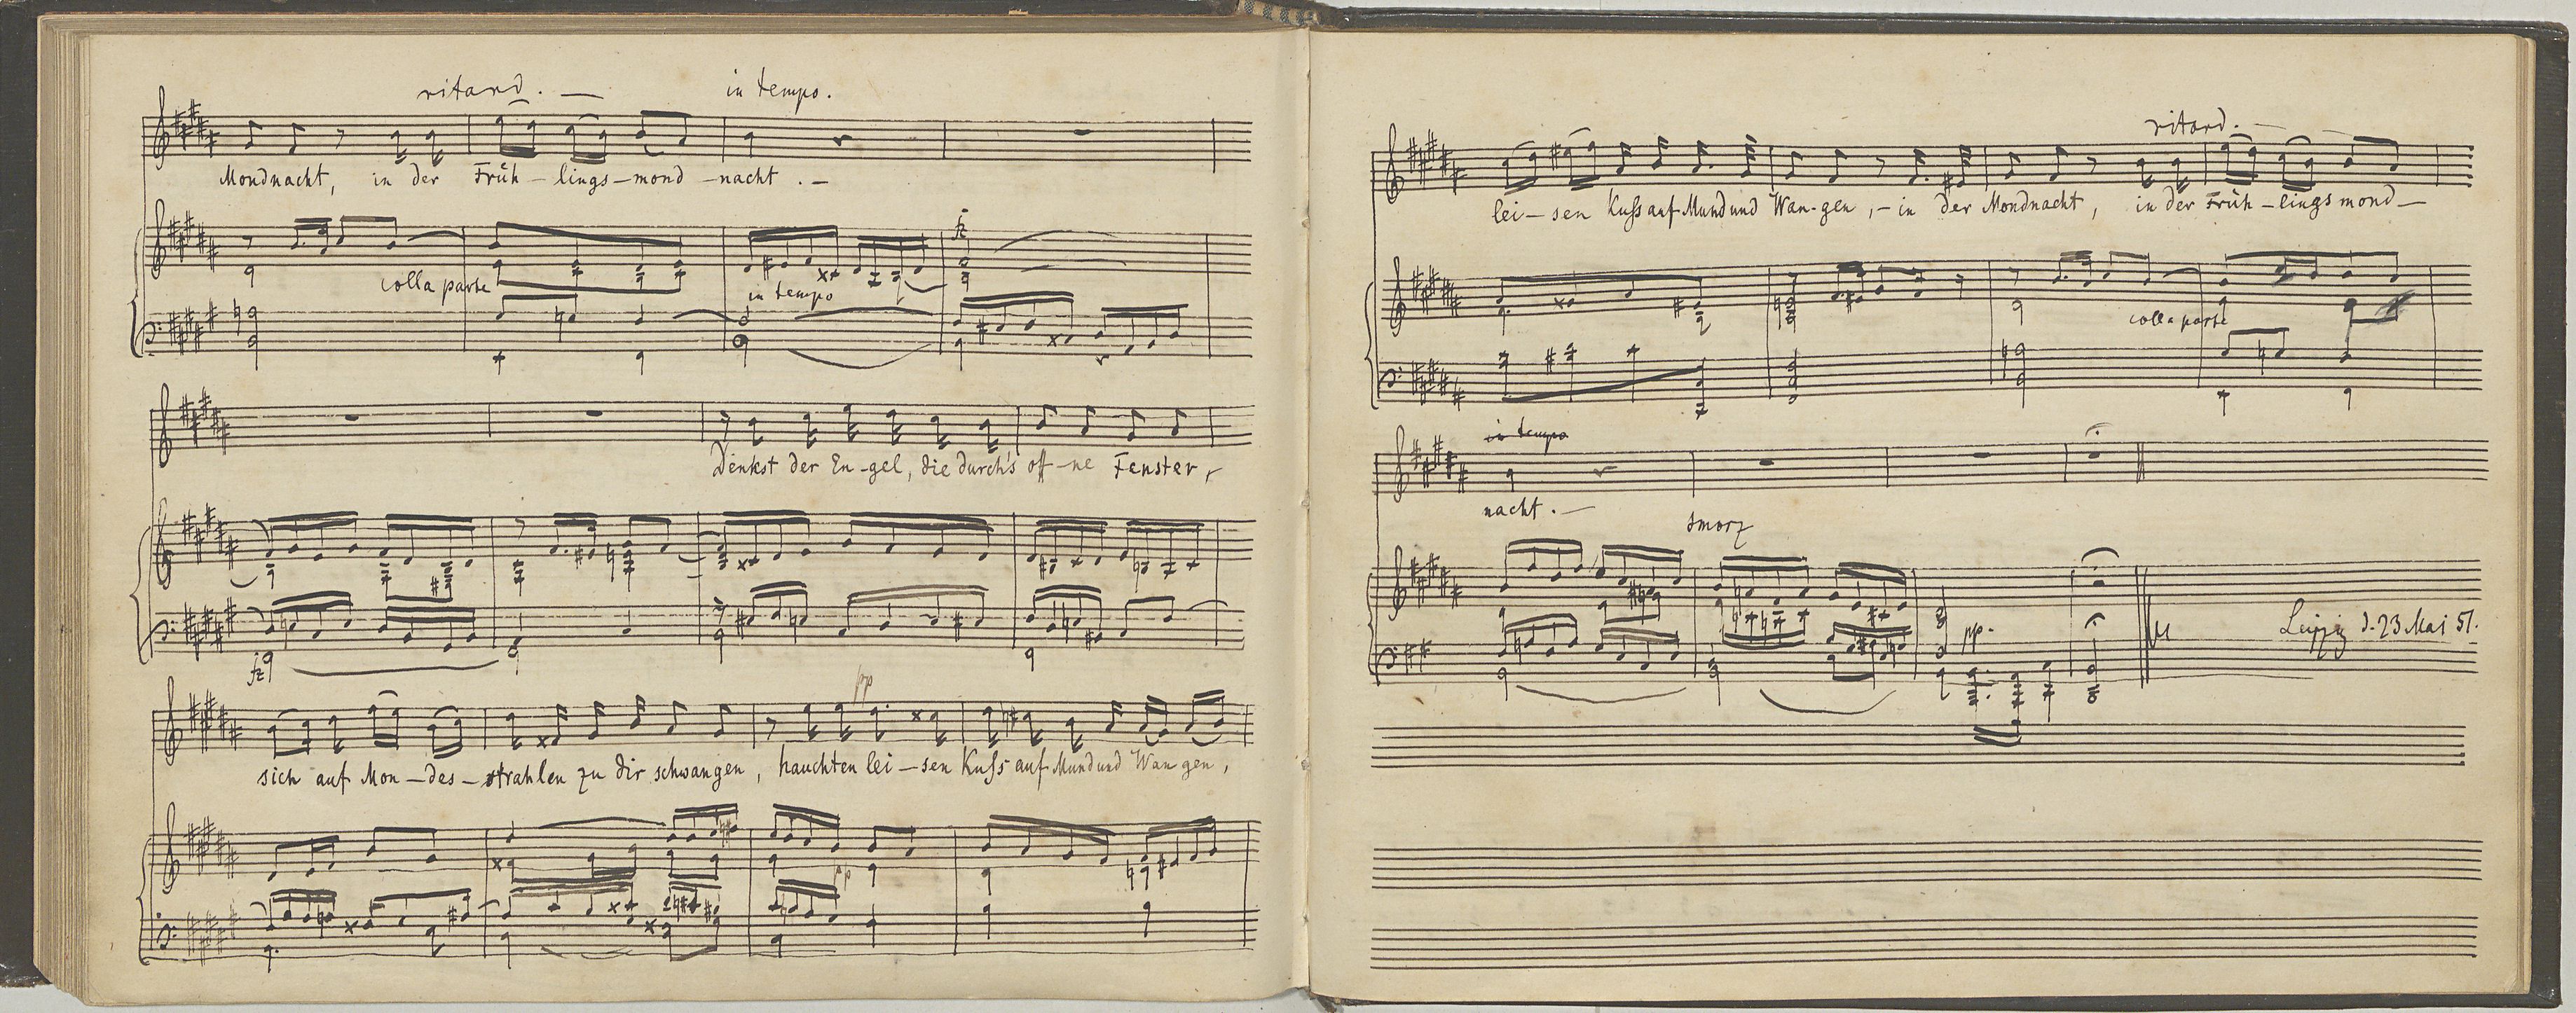 ritard. — in tempo.
Mondnacht, in der Früh-lings-mond-nacht.-
fz
colla parte
in tempo
Denkst der En-gel, die durch's off-ne Fenster,
fz
pp
sich auf Mon-des-strahlen zu dir schwangen, hauchten lei-sen Kuß auf Mund und Wangen,
pp
ritard. —
lei-sen Kuß auf Mund und Wan-gen,- in der Mondnacht, in der Früh-lingsmond-
colla parte
in tempo
nacht.-
smorz
pp.
Leipzig d. 23 Mai 51.